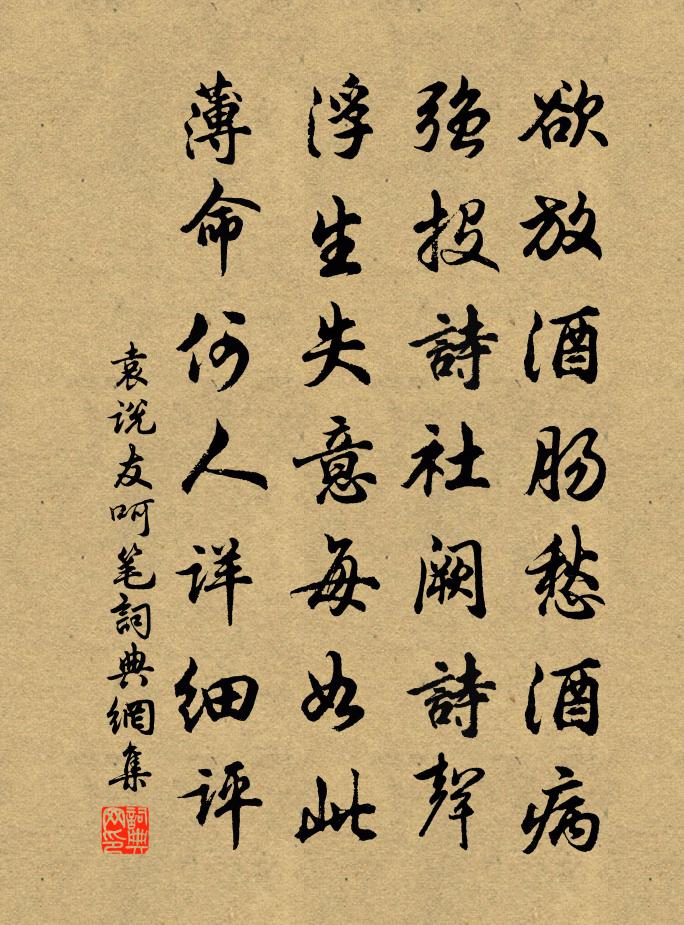 欲放酒肠愁酒病
强投詩社阙詩聲
浮生失意每如此
薄命何人详細评
袁说友呵笔詞典網集
詞典网印